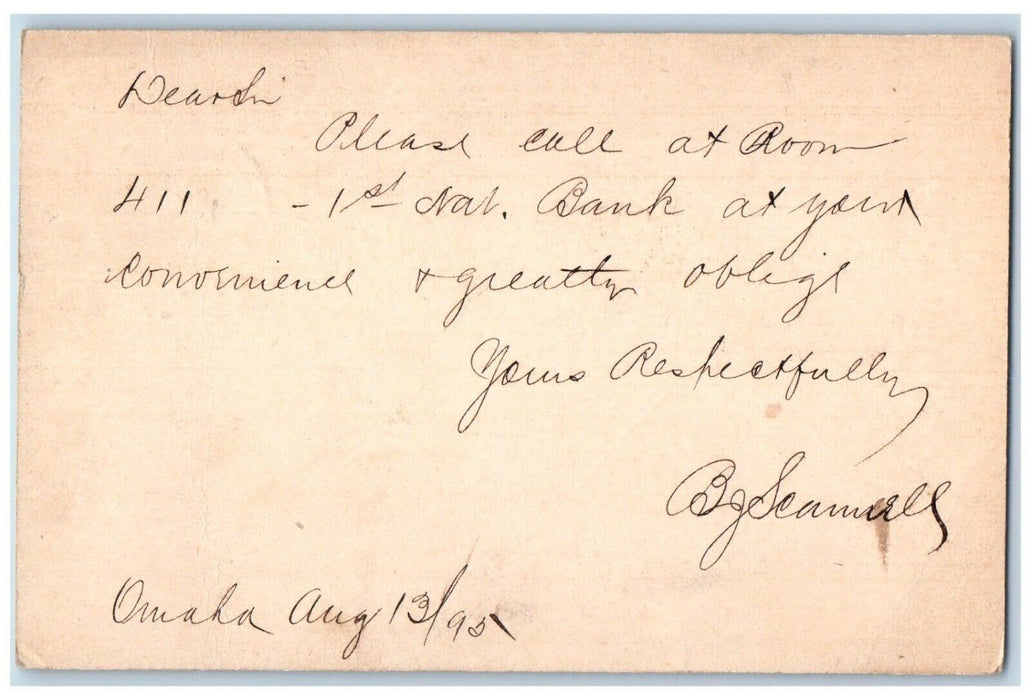 Dear Sir
Please call at Room
411 - 1st Nat. Bank at your
convenience & greatly oblige
Yours Respectfully
B J Scannell
Omaha Aug 13/95